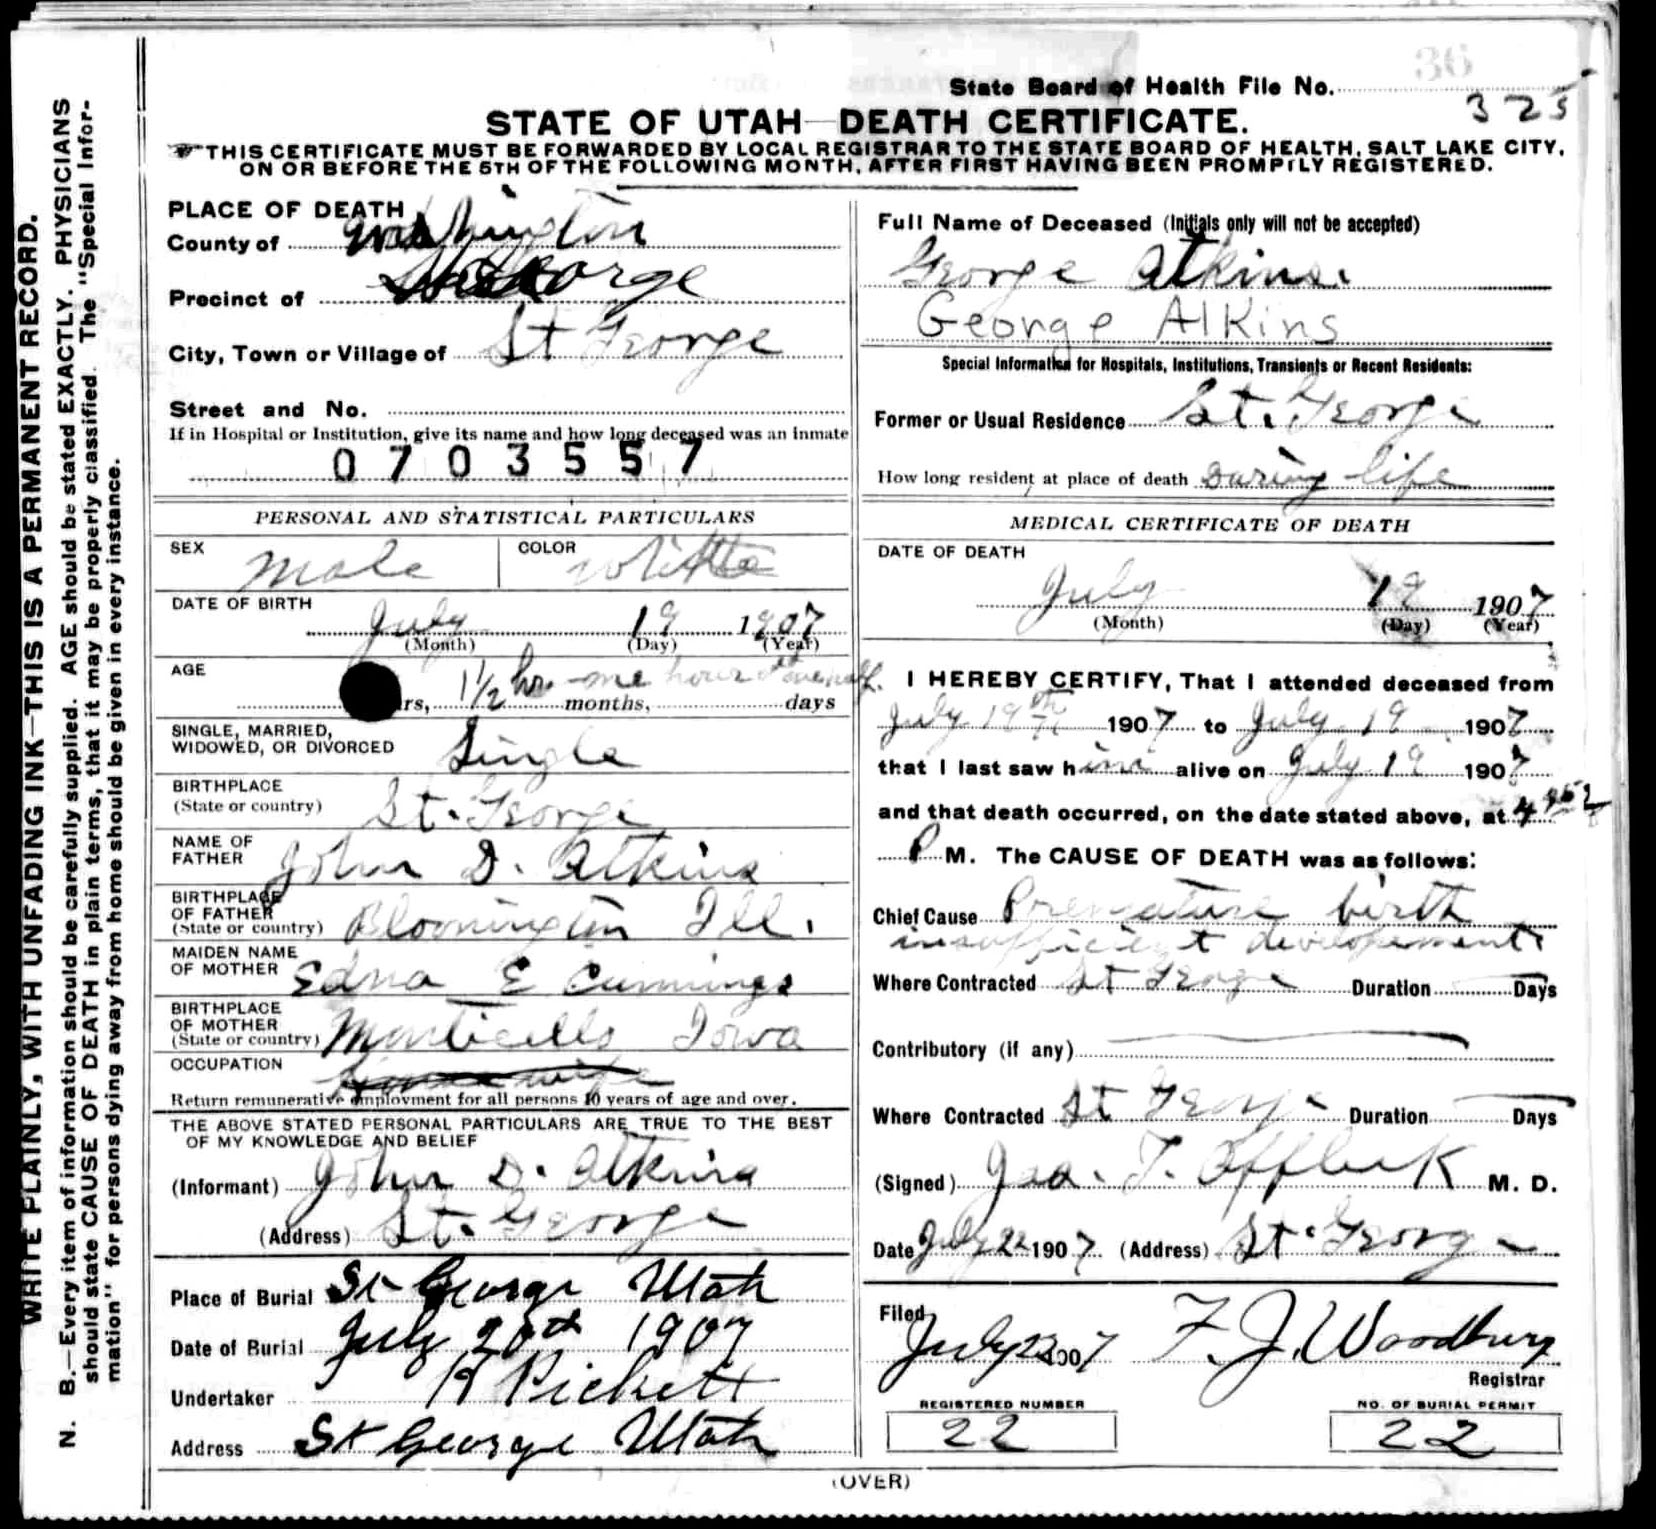 36
State Board of Health File No. 325
STATE OF UTAH—DEATH CERTIFICATE.
THIS CERTIFICATE MUST BE FORWARDED BY LOCAL REGISTRAR TO THE STATE BOARD OF HEALTH, SALT LAKE CITY,
ON OR BEFORE THE 5TH OF THE FOLLOWING MONTH, AFTER FIRST HAVING BEEN PROMPTLY REGISTERED.
WRITE PLAINLY, WITH UNFADING INK—THIS IS A PERMANENT RECORD.
N. B.—Every item of information should be carefully supplied. AGE should be stated EXACTLY. PHYSICIANS
should state CAUSE OF DEATH in plain terms, that it may be properly classified. The "Special Infor-
mation" for persons dying away from home should be given in every instance.
PLACE OF DEATH
County of Washington
Precinct of St George
City, Town or Village of St George
Street and No.
If in Hospital or Institution, give its name and how long deceased was an inmate
0703557
PERSONAL AND STATISTICAL PARTICULARS
SEX Male COLOR White
DATE OF BIRTH
July 19 1907
(Month) (Day) (Year)
AGE
rs, 1½ hr. one hour & one half. months, days
SINGLE, MARRIED,
WIDOWED, OR DIVORCED Single
BIRTHPLACE
(State or country) St. George
NAME OF
FATHER John D. Atkins
BIRTHPLACE
OF FATHER
(State or country) Bloomington Ill.
MAIDEN NAME
OF MOTHER Edna E Cummings
BIRTHPLACE
OF MOTHER
(State or country) Monticello Iowa
OCCUPATION
Return remunerative employment for all persons 10 years of age and over.
THE ABOVE STATED PERSONAL PARTICULARS ARE TRUE TO THE BEST
OF MY KNOWLEDGE AND BELIEF
(Informant) John D. Atkins
(Address) St. George
Place of Burial St George Utah
Date of Burial July 20th 1907
Undertaker R Pickett
Address St George Utah
Full Name of Deceased (Initials only will not be accepted)
George Atkins.
George Atkins
Special Information for Hospitals, Institutions, Transients or Recent Residents:
Former or Usual Residence St. George
How long resident at place of death During life
MEDICAL CERTIFICATE OF DEATH
DATE OF DEATH
July 19 1907
(Month) (Day) (Year)
I HEREBY CERTIFY, That I attended deceased from
July 19th 1907 to July 19 1907
that I last saw him alive on July 19 1907
and that death occurred, on the date stated above, at 4
P M. The CAUSE OF DEATH was as follows:
Chief Cause Premature birth
insufficient developement
Where Contracted St George Duration Days
Contributory (if any)
Where Contracted St George Duration Days
(Signed) T. Affleck M. D.
Date July 22 1907 (Address) St. George
Filed
July 23 1907 F. J. Woodbury
Registrar
REGISTERED NUMBER
22
NO. OF BURIAL PERMIT
22
(OVER)